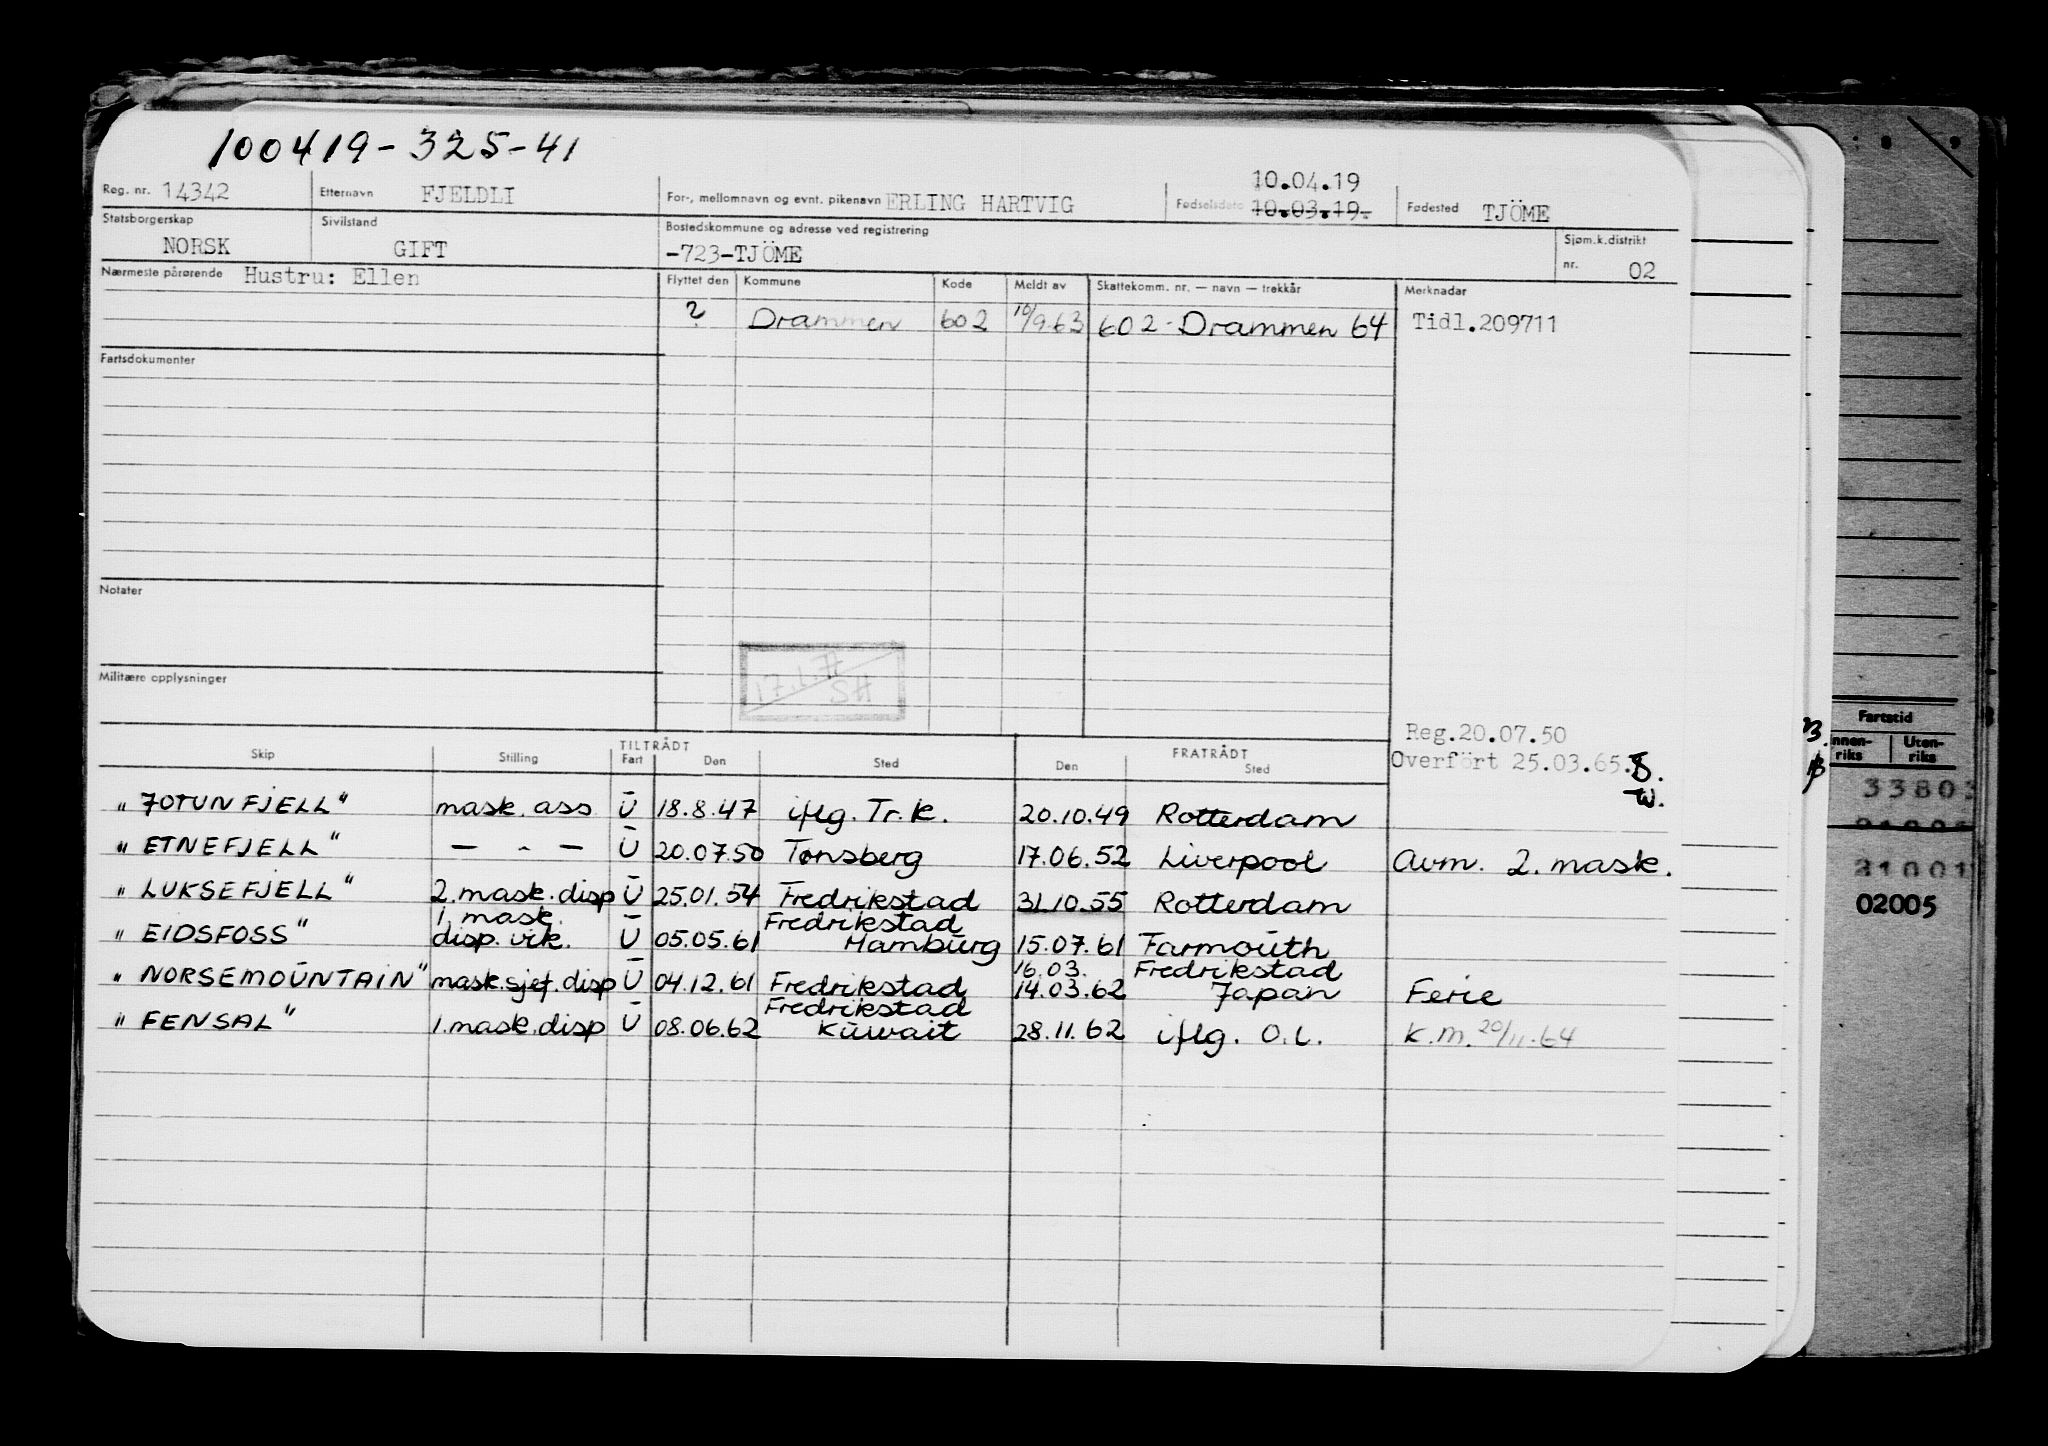 100419-325-41
Reg. nr. 14342 Etternavn FJELDLI For-, mellomnavn og evnt. pikenavn ERLING HARTVIG Fødselsdato 10.04.19 10.03.19. Fødested TJÖME
Statsborgerskap NORSK Sivilstand GIFT Bostedskommune og adresse ved registrering -723-TJÖME Sjøm.k.distrikt nr. 02
Nærmeste pårørende Hustru: Ellen
Flyttet den Kommune Kode Meldt av Skattekomm. nr. — navn — trekkår Merknader
? Drammen 602 10/9.63 602 - Drammen 64 Tidl.209711
Fartsdokumenter
Notater
17.1.77
SH
Militære opplysninger
Reg.20.07.50
Overfört 25.03.65.
Skip Stilling TILTRÅDT Fart Den Sted FRATRÅDT Den Sted
"JOTUNFJELL" mask. ass U 18.8.47 iflg. Tr.k. 20.10.49 Rotterdam
"ETNEFJELL" — " — U 20.07.50 Tønsberg 17.06.52 Liverpool Avm. 2. mask.
"LUKSEFJELL" 2. mask. disp U 25.01.54 Fredrikstad 31.10.55 Rotterdam
"EIDSFOSS" 1. mask. disp. vik. U 05.05.61 Fredrikstad Hamburg 15.07.61 Farmouth
"NORSEMOUNTAIN" mask.sjef. disp U 04.12.61 Fredrikstad 16.03. 14.03.62 Fredrikstad Japan Ferie
"FENSAL" 1. mask. disp U 08.06.62 Fredrikstad Kuwait 28.11.62 iflg. O.L. K.M. 20/11.64
Fartstid
Uten-
riks
02005